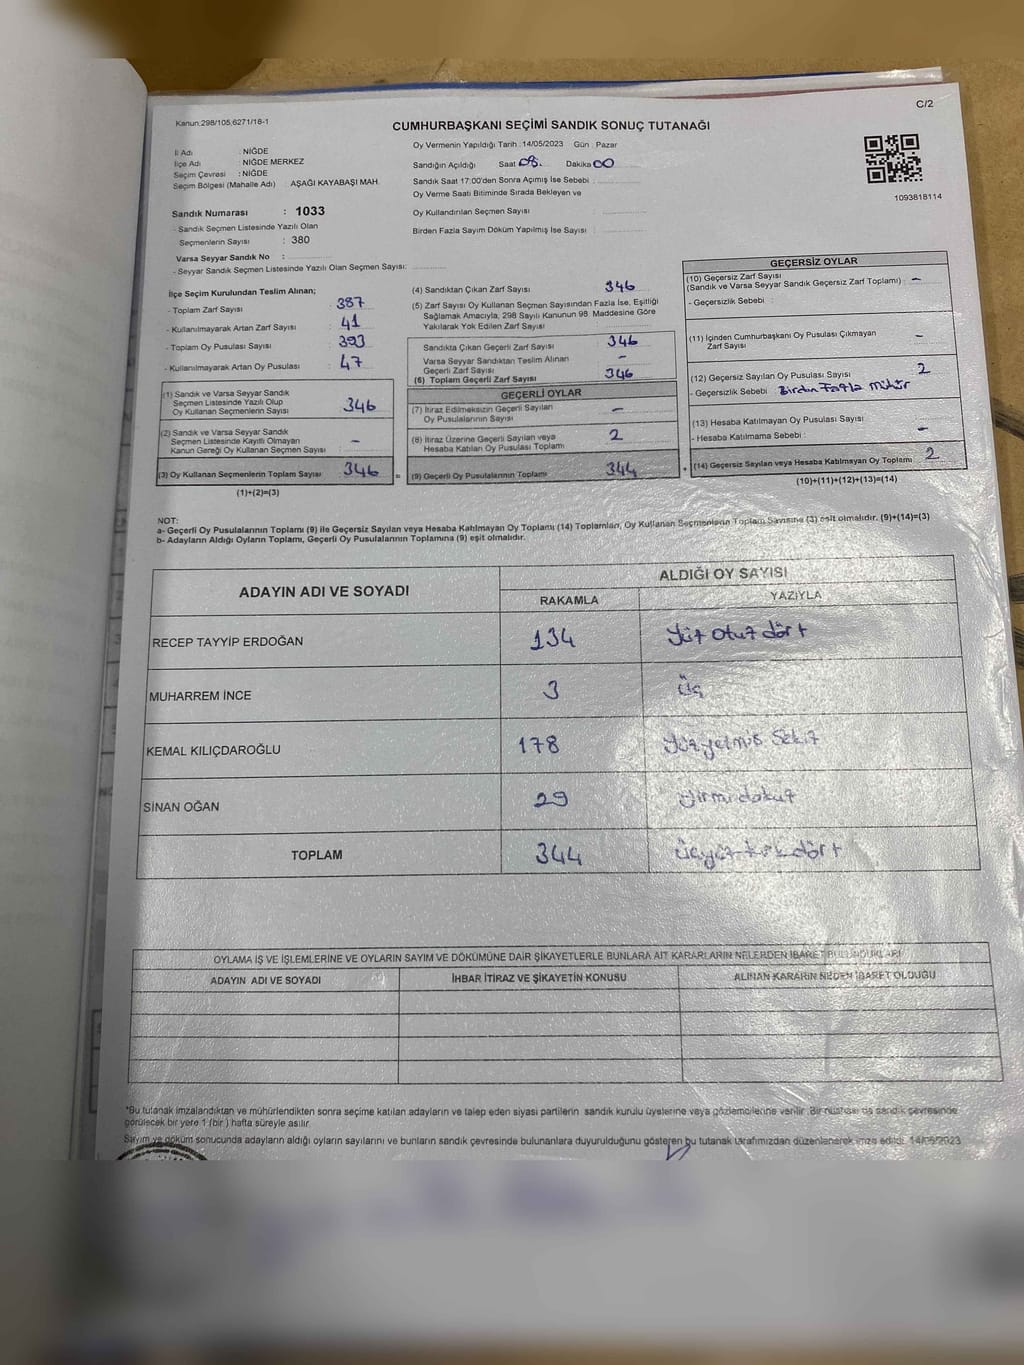 C/2
Kanun:298/105,6271/18-1
CUMHURBAŞKANI SEÇİMİ SANDIK SONUÇ TUTANAĞI
İl Adı : NİĞDE
İlçe Adı : NİĞDE MERKEZ
Seçim Çevresi : NİĞDE
Seçim Bölgesi (Mahalle Adı) : AŞAĞI KAYABAŞI MAH.
Sandık Numarası : 1033
- Sandık Seçmen Listesinde Yazılı Olan
Seçmenlerin Sayısı : 380
Varsa Seyyar Sandık No :
- Seyyar Sandık Seçmen Listesinde Yazılı Olan Seçmen Sayısı:
Oy Vermenin Yapıldığı Tarih :14/05/2023 Gün : Pazar
Sandığın Açıldığı Saat 08. Dakika 00
Sandık Saat 17:00'den Sonra Açımış İse Sebebi :
Oy Verme Saati Bitiminde Sırada Bekleyen ve
Oy Kullandırılan Seçmen Sayısı :
Birden Fazla Sayım Döküm Yapılmış İse Sayısı :
1093818114
İlçe Seçim Kurulundan Teslim Alınan;
- Toplam Zarf Sayısı : 387
- Kullanılmayarak Artan Zarf Sayısı : 41
- Toplam Oy Pusulası Sayısı : 393
- Kullanılmayarak Artan Oy Pusulası : 47
(1) Sandık ve Varsa Seyyar Sandık
Seçmen Listesinde Yazılı Olup
Oy Kullanan Seçmenlerin Sayısı : 346
(2) Sandık ve Varsa Seyyar Sandık
Seçmen Listesinde Kayıtlı Olmayan
Kanun Gereği Oy Kullanan Seçmen Sayısı : -
(3) Oy Kullanan Seçmenlerin Toplam Sayısı : 346 =
(1)+(2)=(3)
(4) Sandıktan Çıkan Zarf Sayısı : 346
(5) Zarf Sayısı Oy Kullanan Seçmen Sayısından Fazla İse, Eşitliği
Sağlamak Amacıyla, 298 Sayılı Kanunun 98. Maddesine Göre
Yakılarak Yok Edilen Zarf Sayısı :
Sandıkta Çıkan Geçerli Zarf Sayısı : 346
Varsa Seyyar Sandıktan Teslim Alınan
Geçerli Zarf Sayısı : -
(6) Toplam Geçerli Zarf Sayısı : 346
GEÇERLİ OYLAR
(7) İtiraz Edilmeksizin Geçerli Sayılan
Oy Pusulalarının Sayısı : -
(8) İtiraz Üzerine Geçerli Sayılan veya
Hesaba Katılan Oy Pusulası Toplamı : 2
(9) Geçerli Oy Pusulalarının Toplamı : 344 +
GEÇERSİZ OYLAR
(10) Geçersiz Zarf Sayısı
(Sandık ve Varsa Seyyar Sandık Geçersiz Zarf Toplamı) : -
- Geçersizlik Sebebi :
(11) İçinden Cumhurbaşkanı Oy Pusulası Çıkmayan
Zarf Sayısı : -
(12) Geçersiz Sayılan Oy Pusulası Sayısı : 2
- Geçersizlik Sebebi : Birden Fazla mühür
(13) Hesaba Katılmayan Oy Pusulası Sayısı : -
- Hesaba Katılmama Sebebi :
(14) Geçersiz Sayılan veya Hesaba Katılmayan Oy Toplamı : 2
(10)+(11)+(12)+(13)=(14)
NOT:
a- Geçerli Oy Pusulalarının Toplamı (9) ile Geçersiz Sayılan veya Hesaba Katılmayan Oy Toplamı (14) Toplamları, Oy Kullanan Seçmenlerin Toplam Sayısına (3) eşit olmalıdır. (9)+(14)=(3)
b- Adayların Aldığı Oyların Toplamı, Geçerli Oy Pusulalarının Toplamına (9) eşit olmalıdır.
ADAYIN ADI VE SOYADI
ALDIĞI OY SAYISI
RAKAMLA YAZIYLA
RECEP TAYYİP ERDOĞAN 134 Yüz otuz dört
MUHARREM İNCE 3 Üç
KEMAL KILIÇDAROĞLU 178 Yüzyetmiş Sekiz
SİNAN OĞAN 29 Yirmi dokuz
TOPLAM 344 Üçyüz kırk dört
OYLAMA İŞ VE İŞLEMLERİNE VE OYLARIN SAYIM VE DÖKÜMÜNE DAİR ŞİKAYETLERLE BUNLARA AİT KARARLARIN NELERDEN İBARET BULUNDUKLARI
ADAYIN ADI VE SOYADI İHBAR İTİRAZ VE ŞİKAYETİN KONUSU ALINAN KARARIN NEDEN İBARET OLDUĞU
*Bu tutanak imzalandıktan ve mühürlendikten sonra seçime katılan adayların ve talep eden siyasi partilerin sandık kurulu üyelerine veya gözlemcilerine verilir. Bir nüshası da sandık çevresinde
görülecek bir yere 1 (bir) hafta süreyle asılır.
Sayım ve döküm sonucunda adayların aldığı oyların sayılarını ve bunların sandık çevresinde bulunanlara duyurulduğunu gösteren bu tutanak tarafımızdan düzenlenerek imza edildi. 14/05/2023